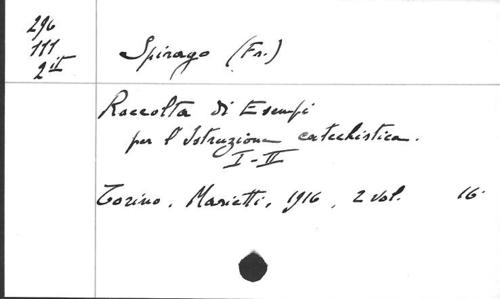 296
111
2 II
Spirago (Fr.)
Raccolta di Esempi
per l'Istruzione catechistica.
I-II
Torino, Marietti, 1916, 2 vol. 16°